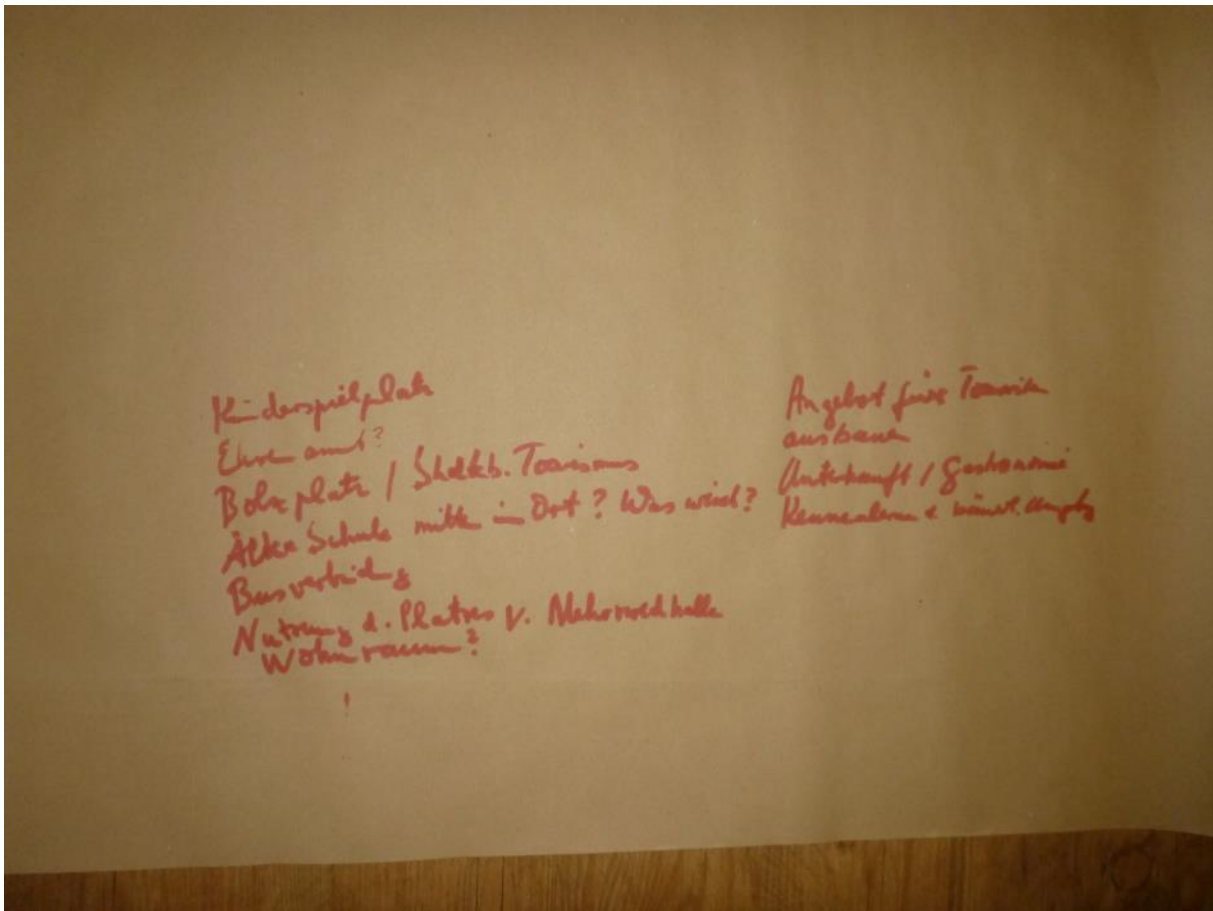 Kinderspielplatz
Ehrenamt?
Bolzplatz / Tourismus
Alte Schule mitten im Ort? Was wird?
Busverbindg
Nutzung d. Platzes v. Mehrzweckhalle
Wohnraum?
!
Angebot fürs
ausbauen
Unterkunft / Gastronomie
Kennenlernen